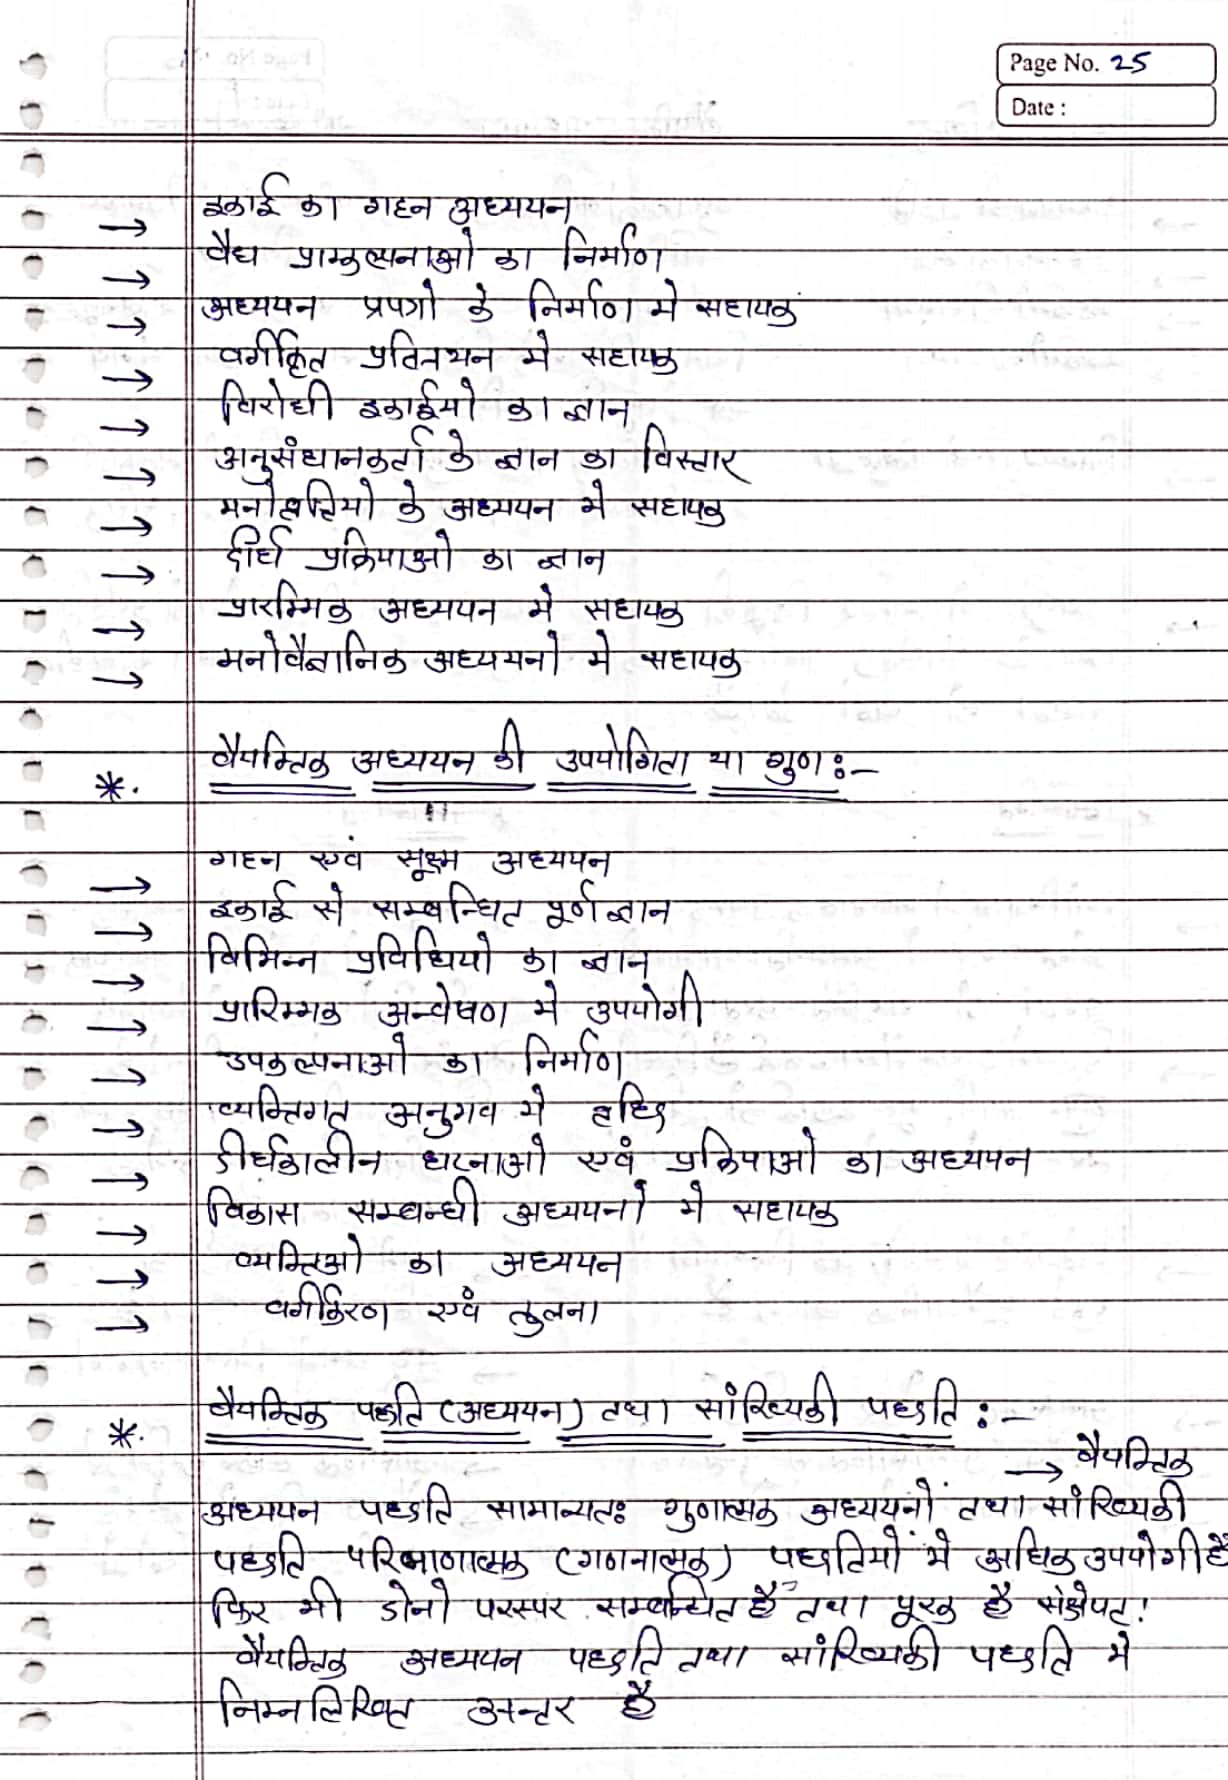 Page No. 25
Date :
→ इकाई का गहन अध्ययन
→ वैध प्राक्कल्पनाओ का निर्माण
→ अध्ययन प्रपत्रो के निर्माण मे सहायक
→ वर्गीकृत प्रतिनयन मे सहायक
→ विरोधी इकाईयो का ज्ञान
→ अनुसंधानकर्ता के ज्ञान का विस्तार
→ मनोवृत्तियो के अध्ययन मे सहायक
→ दीर्घ प्रक्रियाओ का ज्ञान
→ प्रारम्भिक अध्ययन मे सहायक
→ मनोवैज्ञानिक अध्ययनो मे सहायक
*. वैयक्तिक अध्ययन की उपयोगिता या गुण :-
→ गहन एवं सूक्ष्म अध्ययन
→ इकाई से सम्बन्धित पूर्ण ज्ञान
→ विभिन्न प्रविधियो का ज्ञान
→ प्रारम्भिक अन्वेषण मे उपयोगी
→ उपकल्पनाओ का निर्माण
→ व्यक्तिगत अनुभव मे वृद्धि
→ दीर्घकालीन घटनाओ एवं प्रक्रियाओ का अध्ययन
→ विकास सम्बन्धी अध्ययनो मे सहायक
→ व्यक्तिओ का अध्ययन
→ वर्गीकरण एवं तुलना
*. वैयक्तिक पद्धति (अध्ययन) तथा सांख्यिकी पद्धति :-
→ वैयक्तिक
अध्ययन पद्धति सामान्यतः गुणात्मक अध्ययनों तथा सांख्यिकी
पद्धति परिमाणात्मक (गणनात्मक) पद्धतियों मे अधिक उपयोगी है
फिर भी दोनो परस्पर सम्बन्धित है तथा पूरक है संक्षेपत!
वैयक्तिक अध्ययन पद्धति तथा सांख्यिकी पद्धति मे
निम्नलिखित अन्तर है